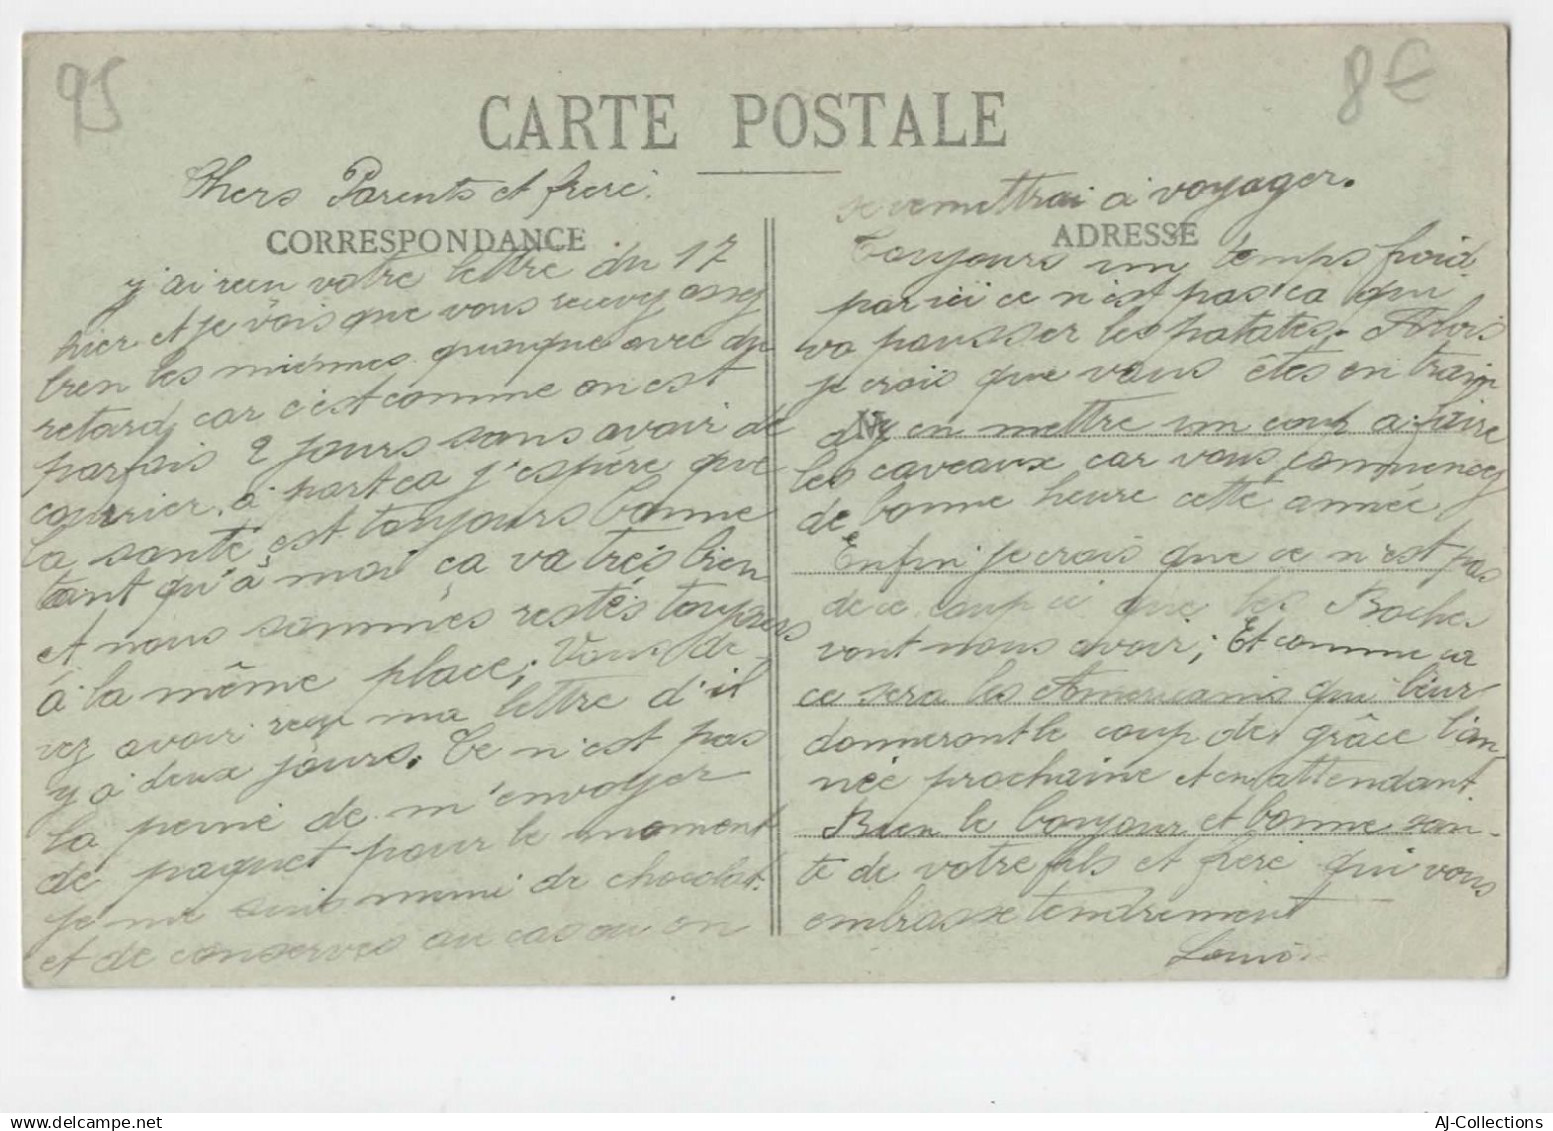 95
8€
CARTE POSTALE
Chers Parents et frère.
CORRESPONDANCE
j'ai reçu votre lettre du 17
hier et je vois que vous recevez assez
bien les miennes quoique avec du
retard, car c'est comme on est
parfois 2 jours sans avoir de
courrier, à part ça j'espère que
la santé est toujours bonne
tant qu'à moi ça va très bien
et nous sommes restés toujours
à la même place; Vous de-
vez avoir reçu ma lettre d'il
y a deux jours. Ce n'est pas
la peine de m'envoyer
de paquet pour le moment
je me suis muni de chocolat
et de conserves au cas ou on
se remettrai à voyager.
ADRESSE
Toujours un temps froid
par ici ce n'est pas ça qui
va pousser les patates. Alors
je crois que vous êtes en train
d'y en mettre un coup a faire
les caveaux car vous commencez
de bonne heure cette année
Enfin je crois que ce n'est pas
de ce coup ci que les Boches
vont nous avoir; Et comme ça
ce sera les Americains qui leur
donneront le coup de grâce l'an-
née prochaine et en attendant
Bien le bonjour et bonne san-
té de votre fils et frère qui vous
embrasse tendrement
Louis
AJ-Collections